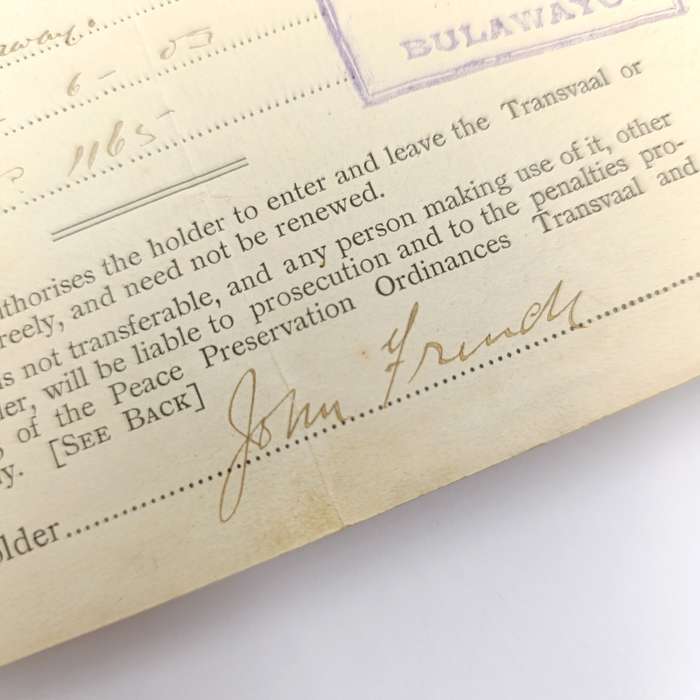 BULAWAYO
6 - 05
1165
thorises the holder to enter and leave the Transvaal or
reely, and need not be renewed.
s not transferable, and any person making use of it, other
er, will be liable to prosecution and to the penalties pro-
of the Peace Preservation Ordinances Transvaal and
y. [SEE BACK]
older
John French